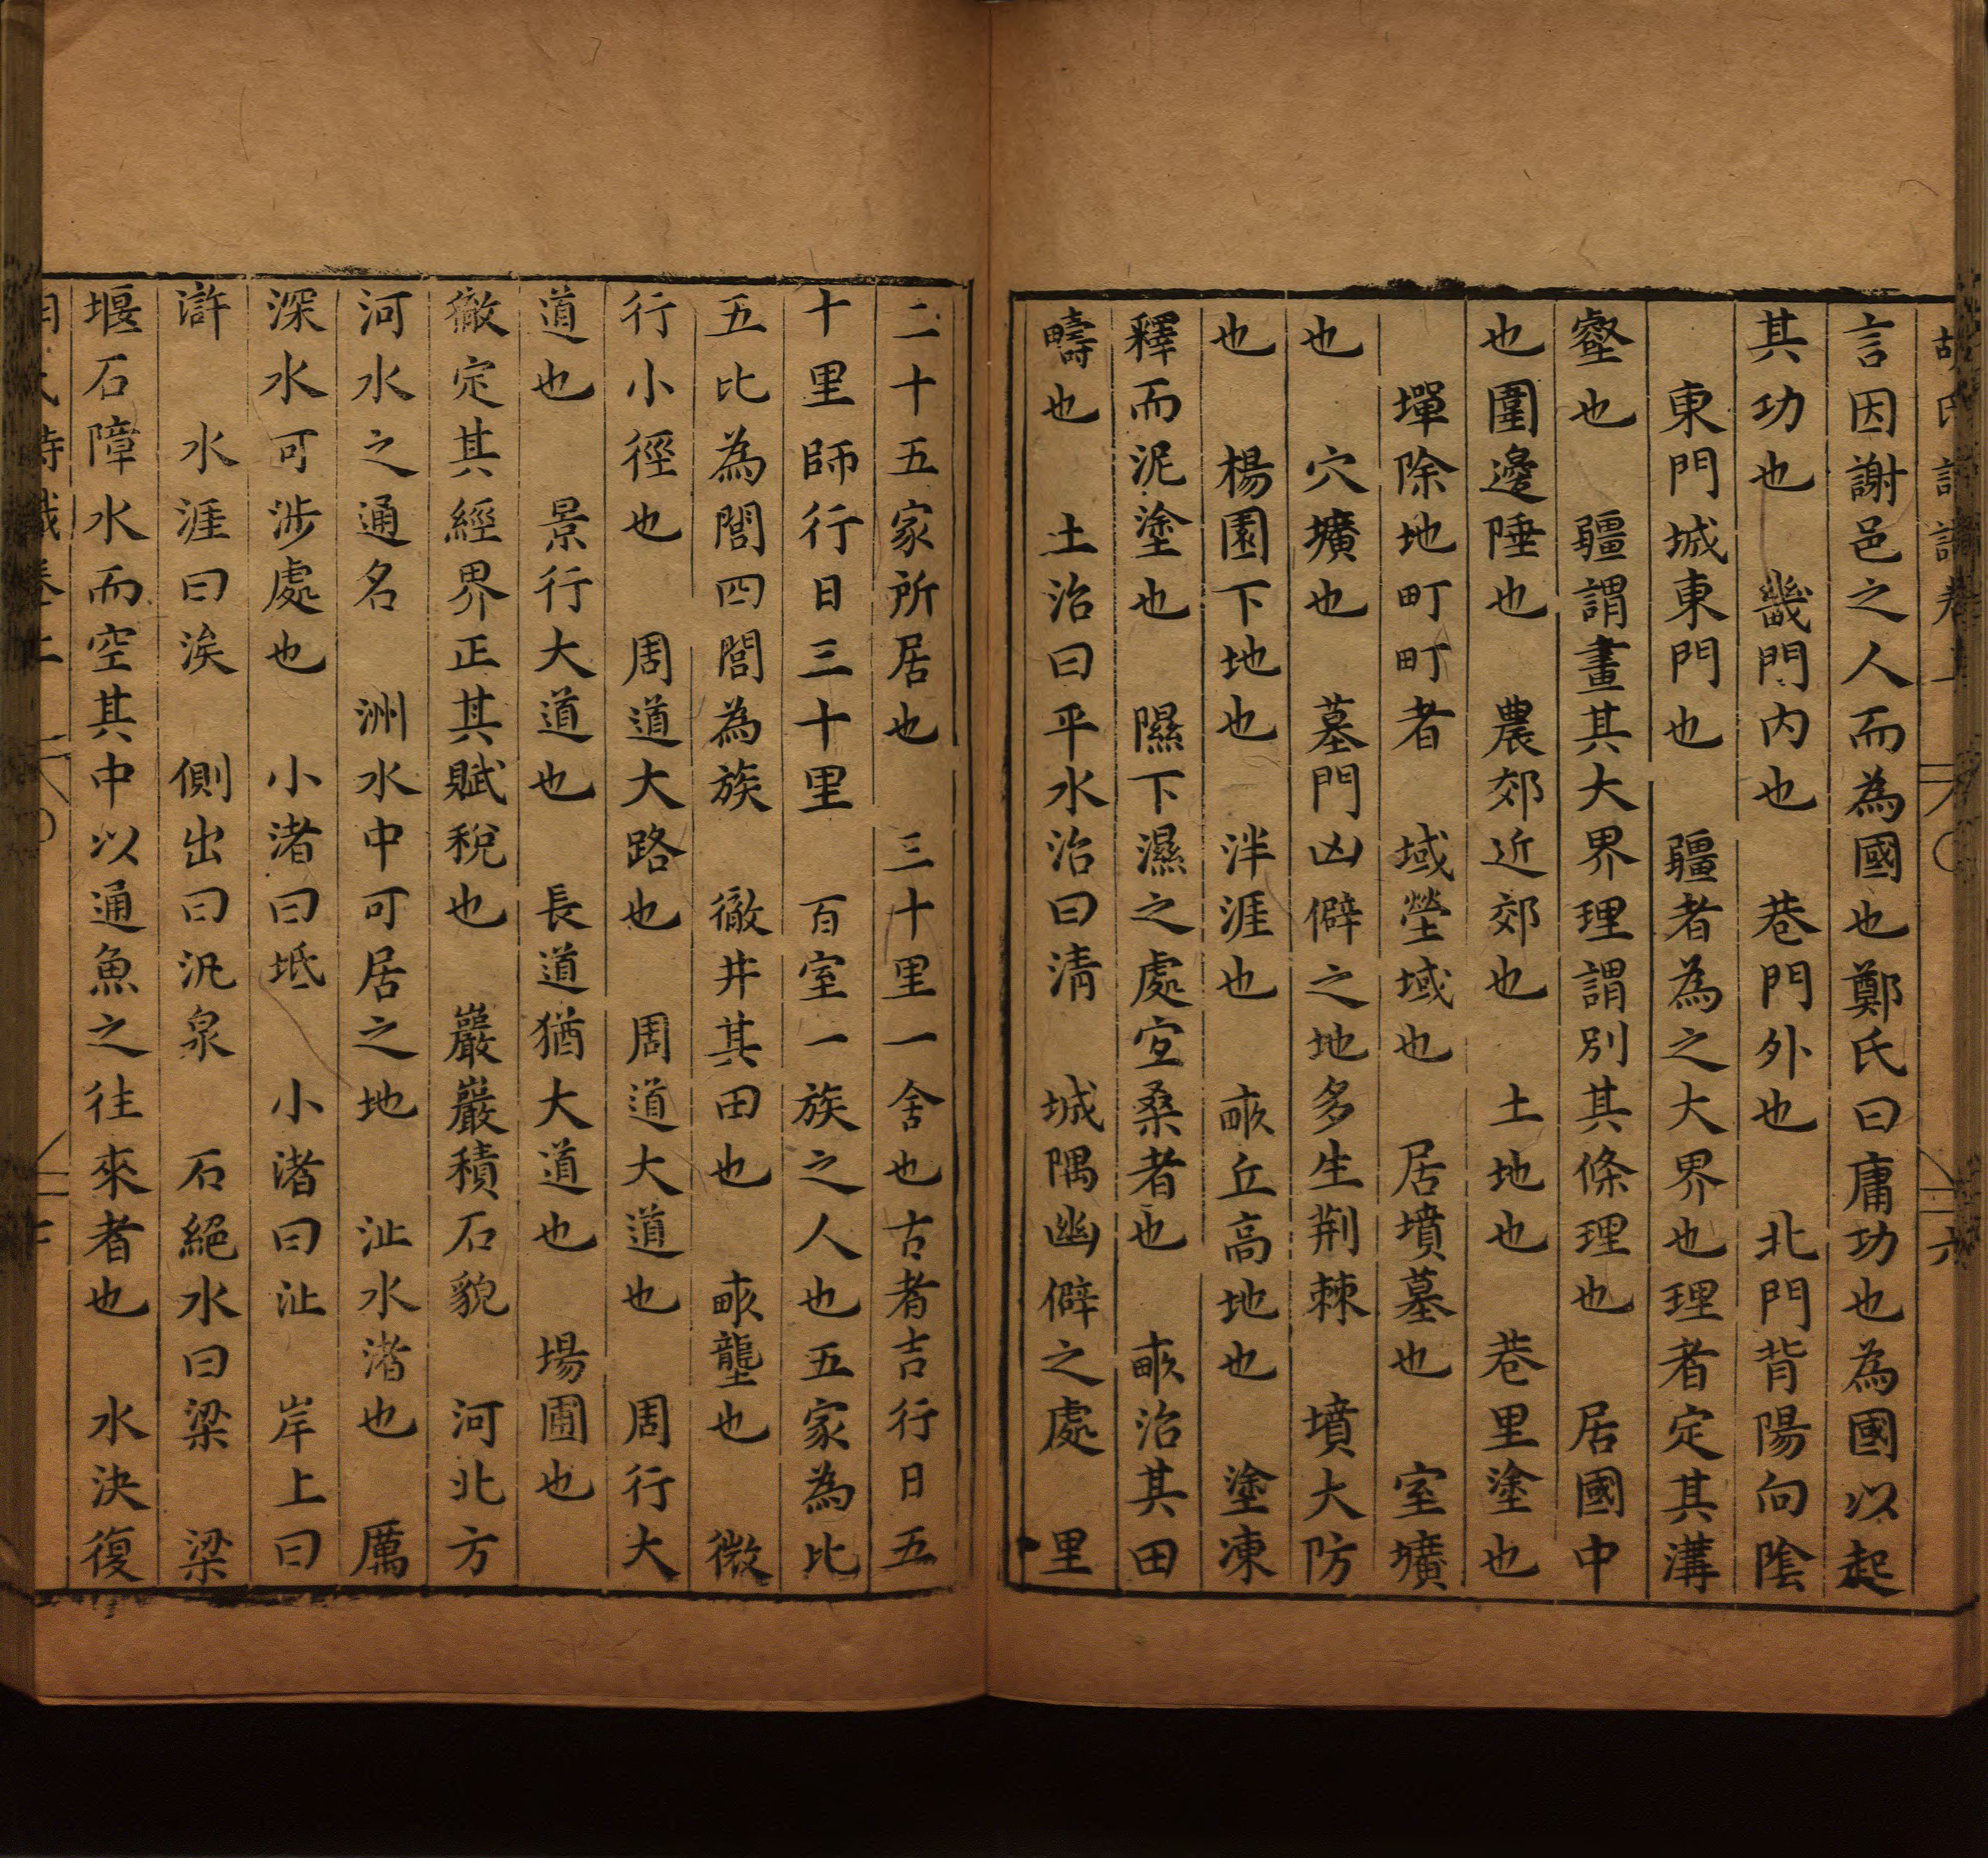 言因謝邑之人而為國也鄭氏曰庸功也為國以起
其功也　畿門内也　巷門外也　北門背陽向陰
東門城東門也　疆者為之大界也理者定其溝
壑也　疆謂畫其大界理謂別其條理也　居國中
也圍邊陲也　農郊近郊也　土地也　巷里塗也
墠除地町町者　域塋域也　居墳墓也　室壙
也　穴壙也　墓門凶僻之地多生荆棘　墳大防
也　楊園下地也　泮涯也　畞丘高地也　塗凍
釋而泥塗也　隰下濕之處宜桑者也　畞治其田
疇也　土治曰平水治曰清　城隅幽僻之處　里
二十五家所居也　三十里一舍也古者吉行日五
十里師行日三十里　百室一族之人也五家為比
五比為閭四閭為族　徹井其田也　畞壟也　微
行小徑也　周道大路也　周道大道也　周行大
道也　景行大道也　長道猶大道也　場圃也
徹定其經界正其賦稅也　巖巖積石貌　河北方
河水之通名　洲水中可居之地　沚水渚也　厲
深水可涉處也　小渚曰坻　小渚曰沚　岸上曰
滸　水涯曰涘　側出曰氿泉　石絕水曰梁　梁
堰石障水而空其中以通魚之往來者也　水決復